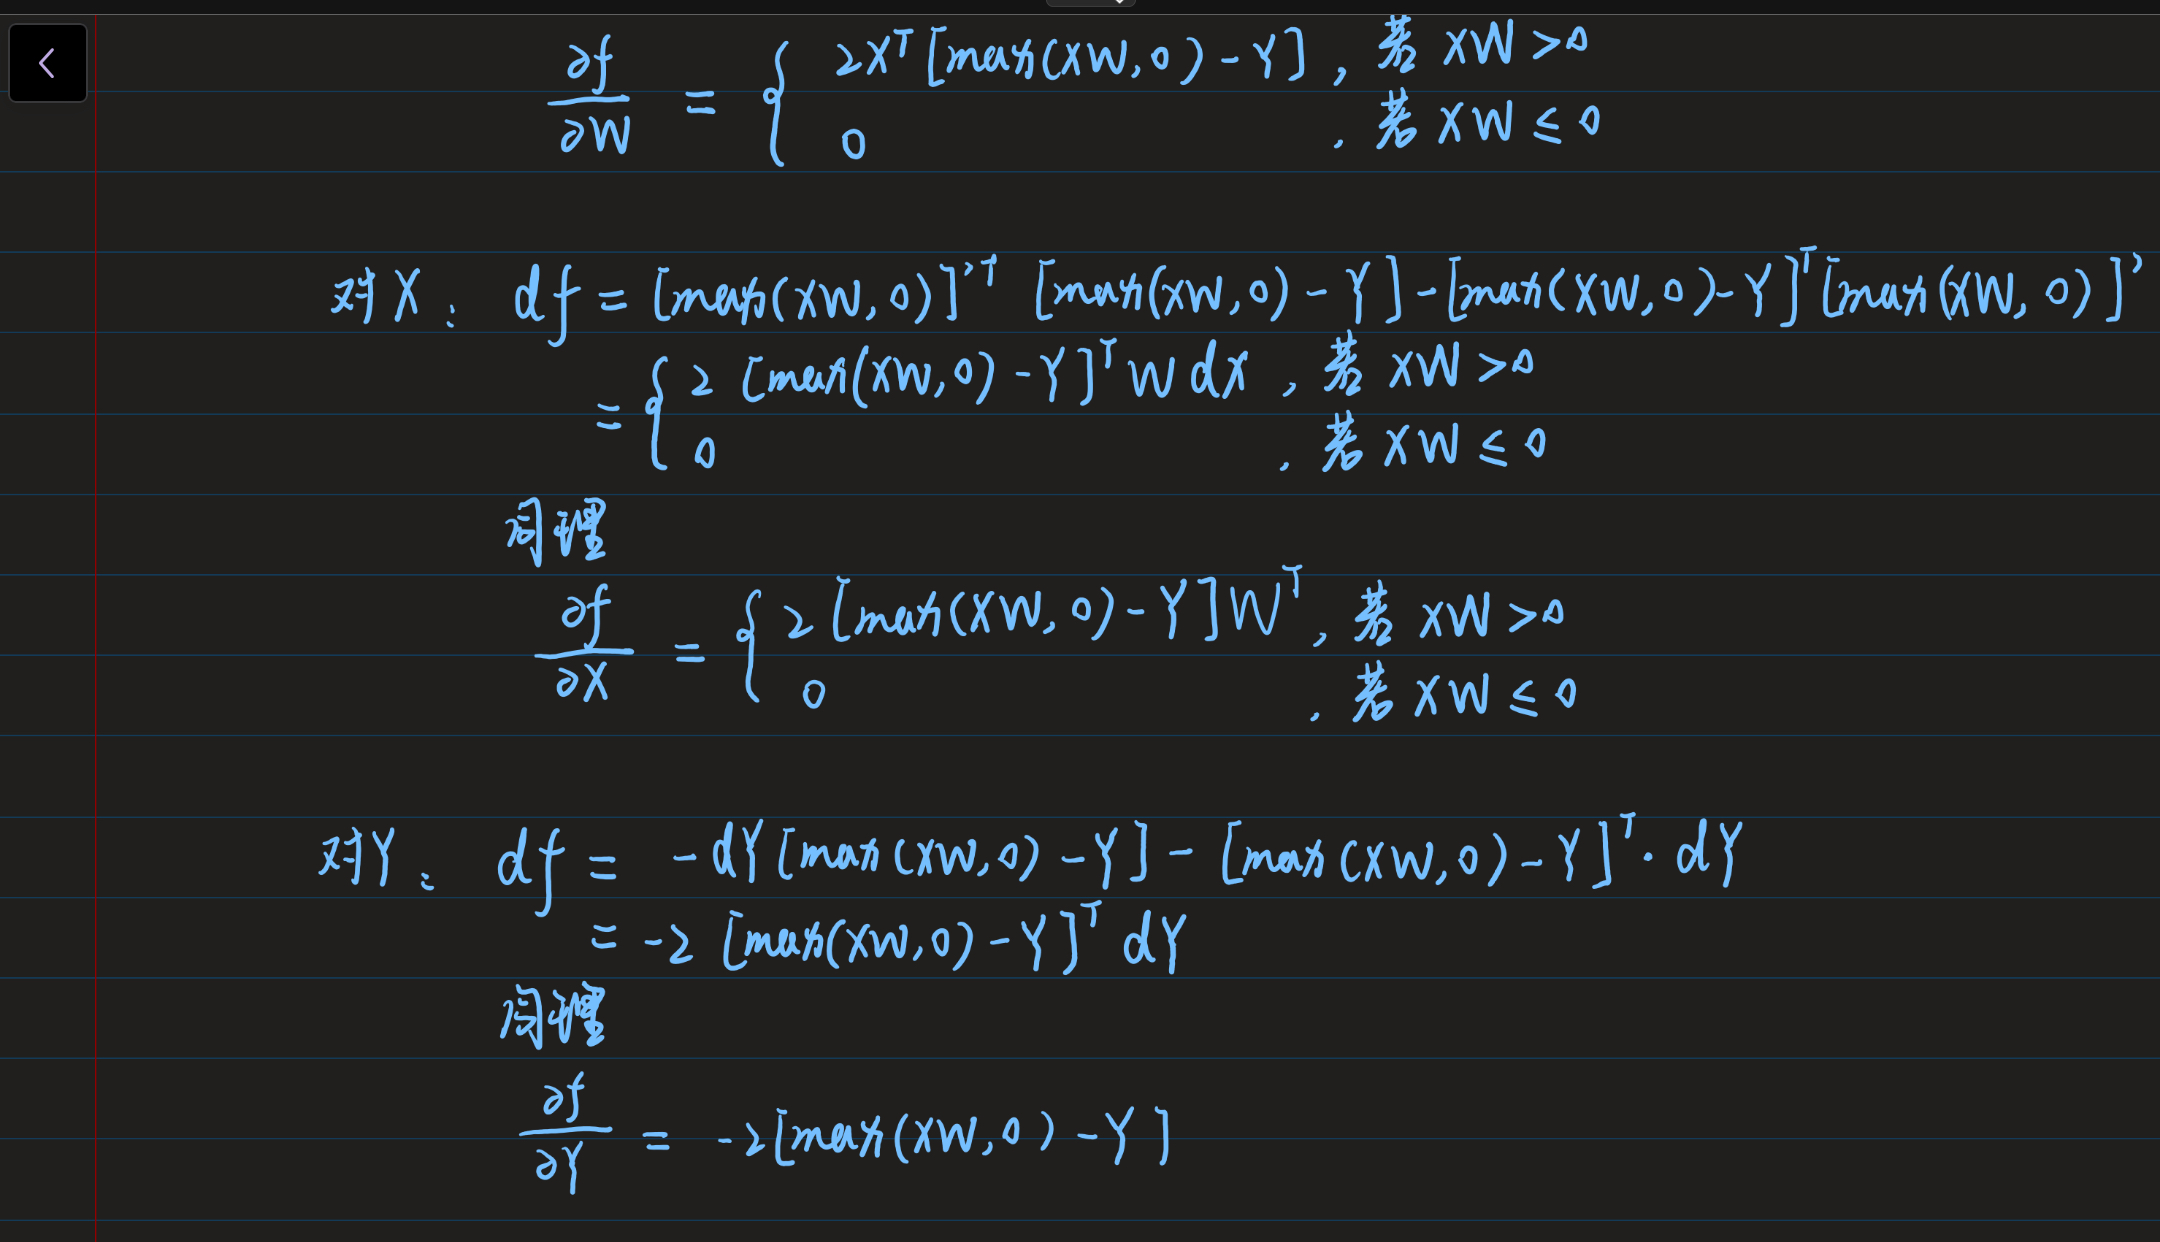 ∂f/∂W = { 2X^T[max(XW,0)-Y], 若 XW>0
0 , 若 XW≤0
对X: df = [max(XW,0)]'^T [max(XW,0)-Y]-[max(XW,0)-Y]^T[max(XW,0)]'
= { 2 [max(XW,0)-Y]^T W dX , 若 XW>0
0 , 若 XW≤0
同理
∂f/∂X = { 2 [max(XW,0)-Y]W^T, 若 XW>0
0 , 若 XW≤0
对Y: df = -dY[max(XW,0)-Y] - [max(XW,0)-Y]^T·dY
= -2 [max(XW,0)-Y]^T dY
同理
∂f/∂Y = -2[max(XW,0)-Y]